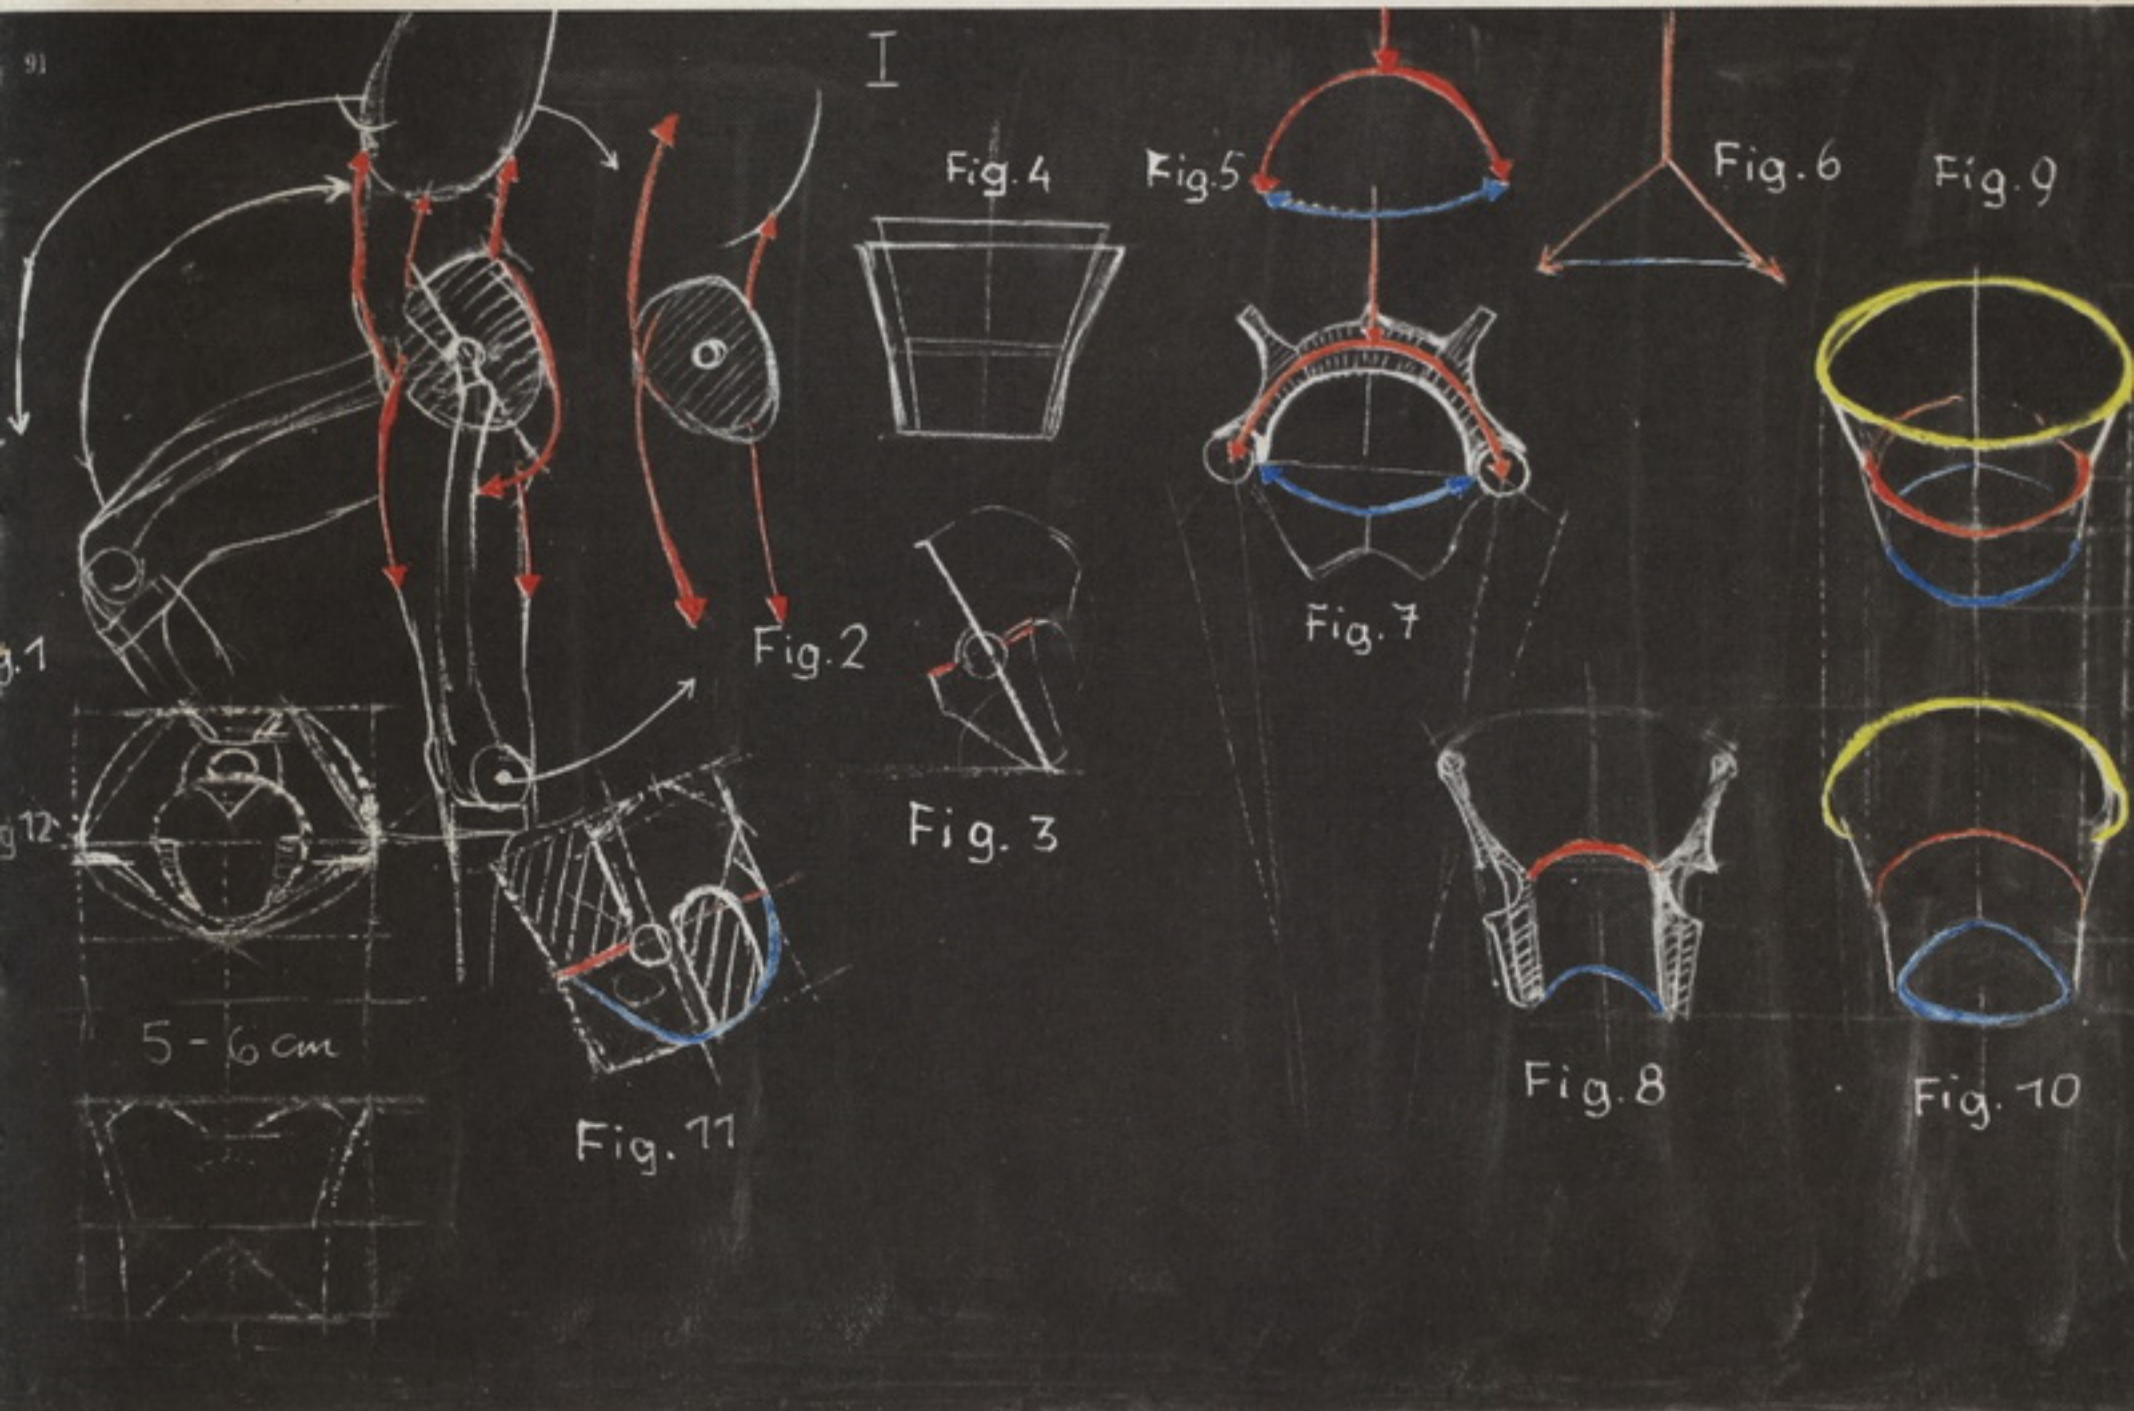 91
I
Fig.4
Fig.5
Fig.6
Fig.9
g.1
Fig.2
Fig.7
Fig. 3
g 12
5-6 cm
Fig. 11
Fig.8
Fig. 10